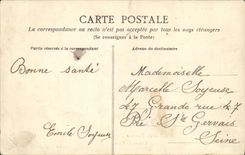 CARTE POSTALE
La correspondance au recto n'est pas acceptée par tous les pays étrangers
(Se renseigner à la Poste)
Partie réservée à la correspondance
Adresse du destinataire
Bonne santé
Emile Soyeux
Mademoiselle
Marcelle Soyeuse
47 Grande rue 47
Pré St Gervais
Seine